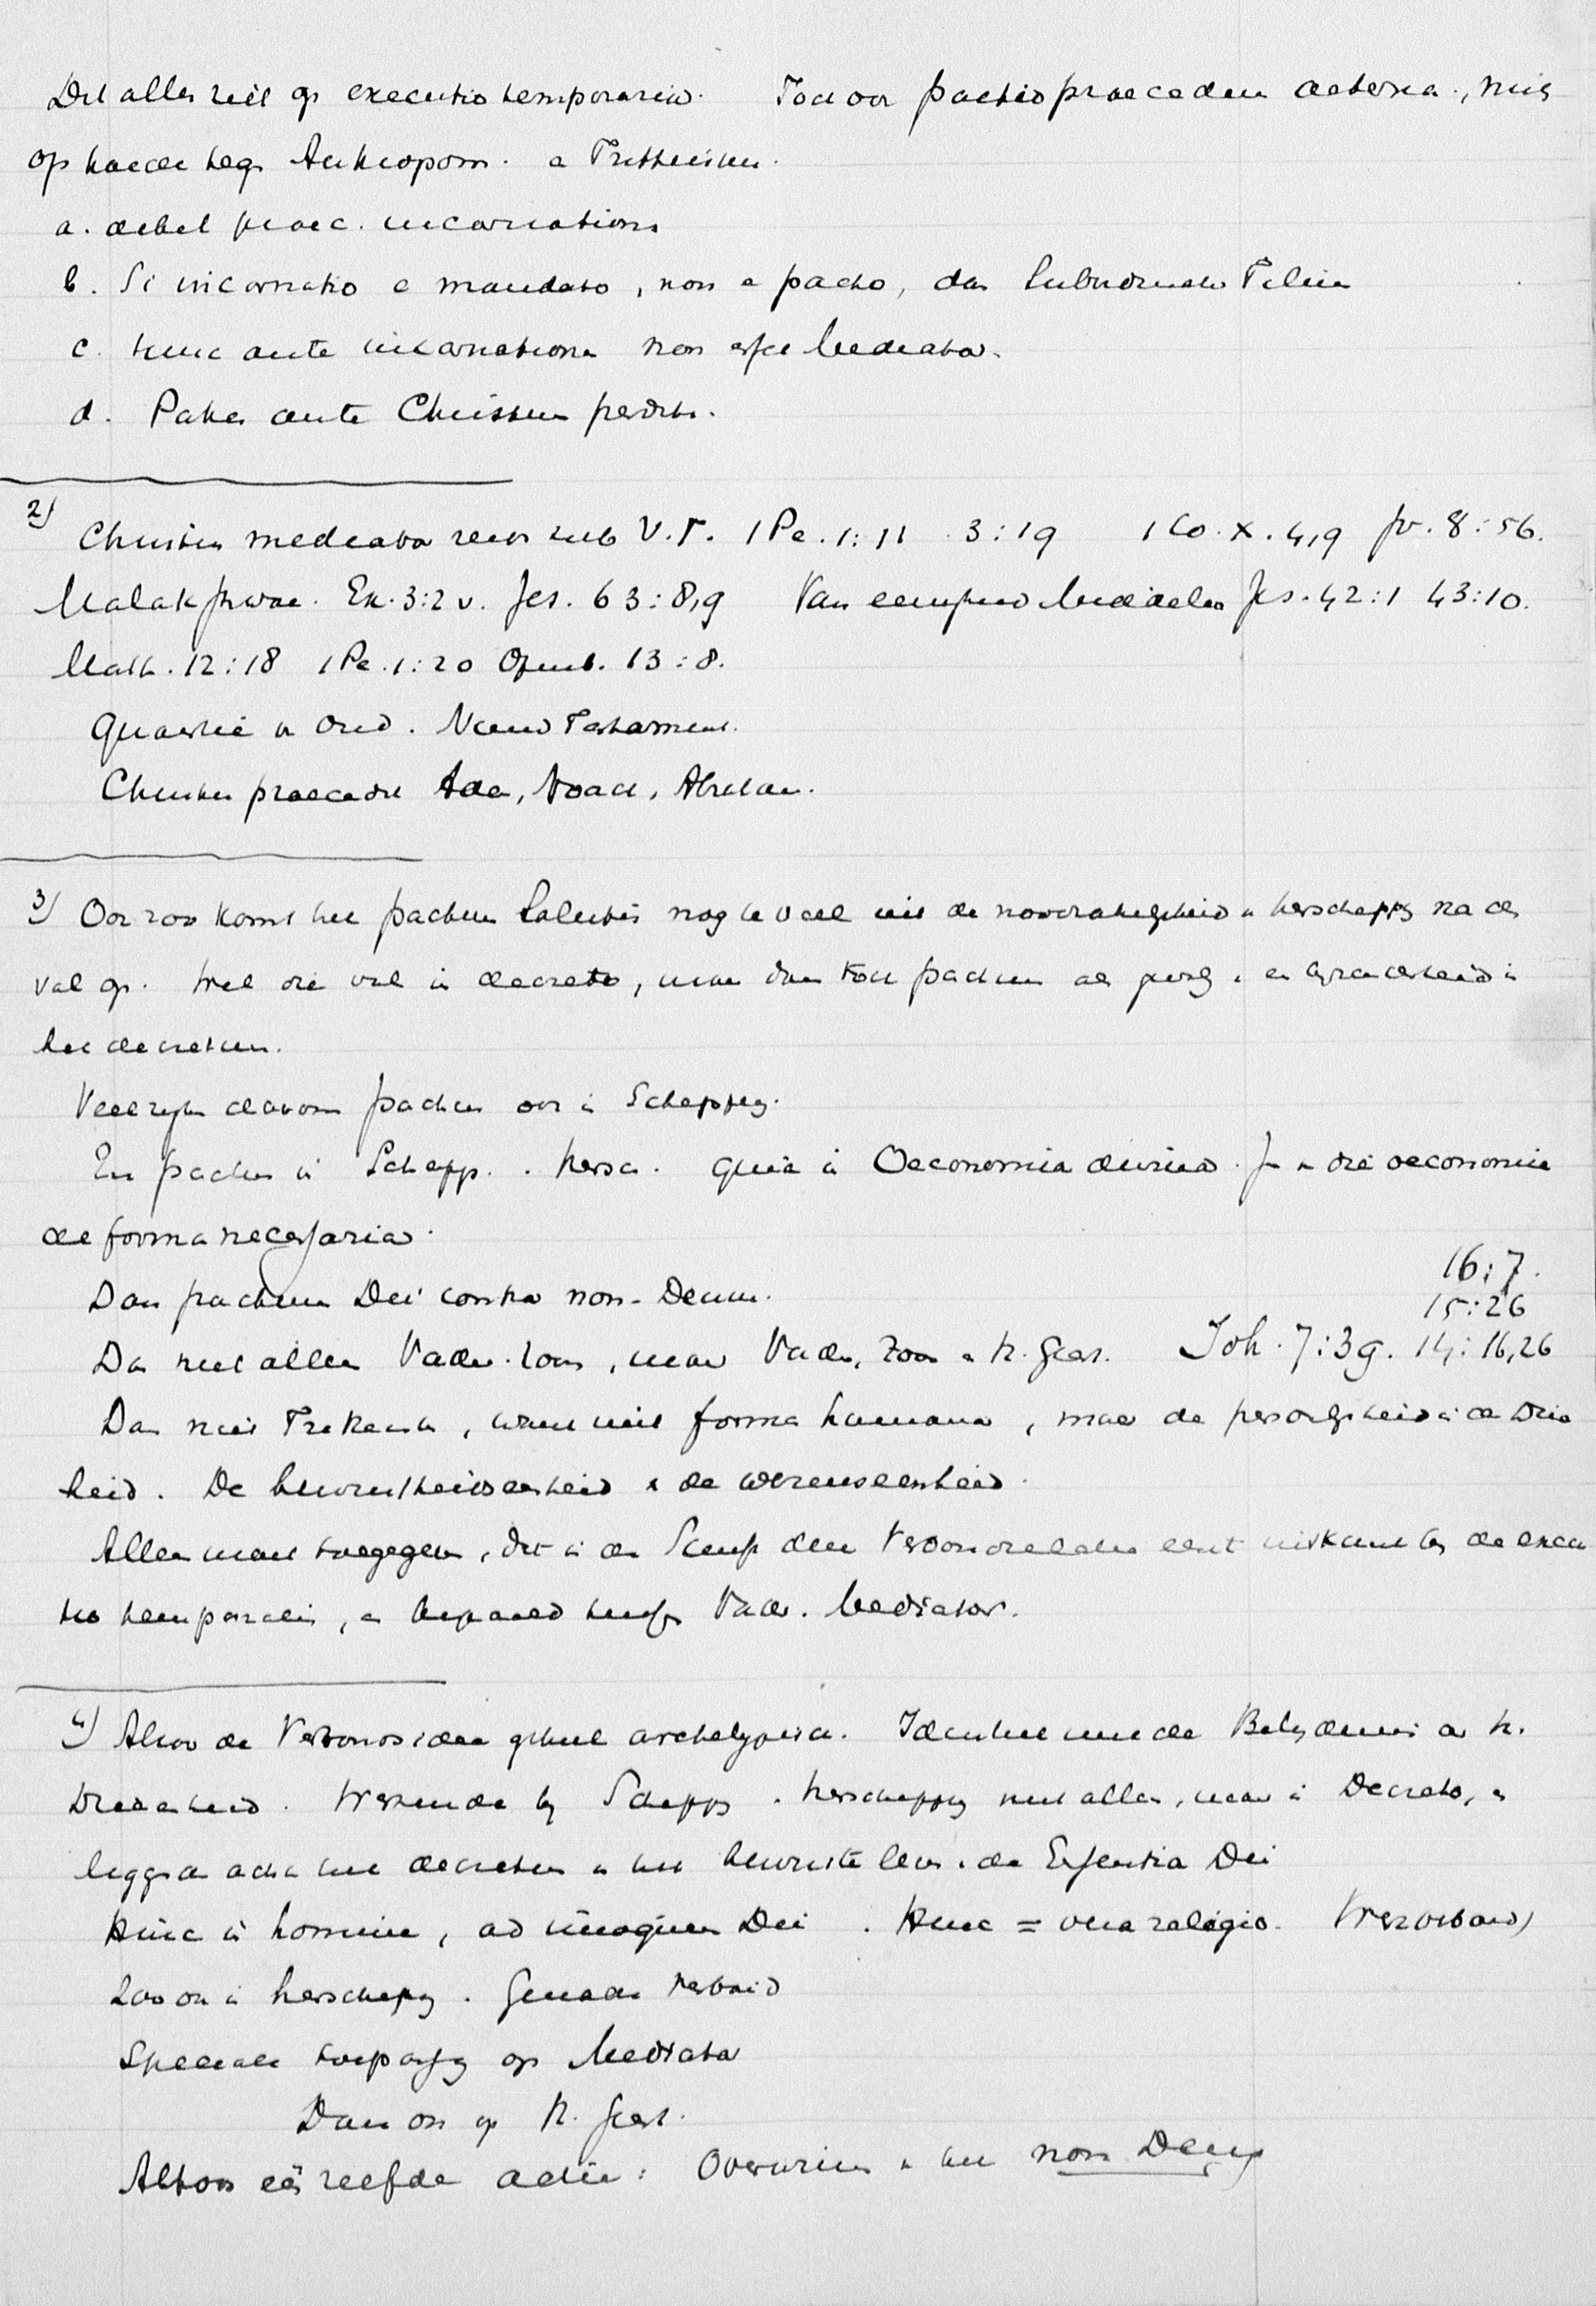 Dit alles ziet op executio temporaria. Toch ook pactio praecedens aeterna, mits
op hoede tegen Anthropom. e Tritheisme.
a. debet praec. incarnations
b. Si incarnatio e mandato, non e pacto, dan Subordinatio Filii
c. tunc ante incarnationem non esset Mediator.
d. Patres ante Christum perditi.
2) Christus mediator reeds sub V.T. 1 Pe. 1:11 3:19 1 Co. X. 4,9 Jo. 8:56.
Malak Jhvae. Ex. 3:2 v. Jes. 63:8,9 Van eeuwigheid Middelaar Jes. 42:1 43:10.
Matth. 12:18 1 Pe. 1:20 Openb. 13:8.
Quaestie v Oud. Nieuw Testament.
Christus praecedit Ada, Noach, Abraham.
3) Ook zoo komt het pactum Salutis nog te veel uit de noodzakelijkheid v herschepping na de
val op. Wel die val in decreto, maar dan toch pactum als gevolg v en bijzonderheid in
het decretum.
Veeleer daarom pactum ook in Schepping.
En pactum in Schepp. . hersch. quia in Oeconomia divina. In die oeconomie
de forma necessaria.
Dan pactum Dei contra non-Deum.
16:7.
15:26
Dan niet alleen Vader. Zoon, maar Vader, Zoon e H. Geest. Joh. 7:39. 14:16,26
Dan niet , want niet forma humana, maar de persoonlijkheid in de Drie
heid. De bewustheidseenheid v de wezenseenheid.
Alleen moet toegegeven, dat in de Schrift deze Verbondsrelatie eerst uitkomt bij de execu
tio temporalis, en bepaald tusschen Vader. Mediator.
4) Alzoo de Verbondsidee geheel archetypisch. Identiek met de Belijdenis der H.
Drieëenheid. Werkende bij Schepping. herschepping niet alleen, maar in Decreto, en
liggende achter het decretum in het bewuste leven in de Essentia Dei
Hinc in homine, ad imaginem Dei. Hinc = vera religio. Werkverbond,
zoo ook in herschepping. Genade verbond
Speciale toepassing op Mediator
Dan ook op H. Geest.
Altoos één zelfde actie: Overwinning v het non Deus